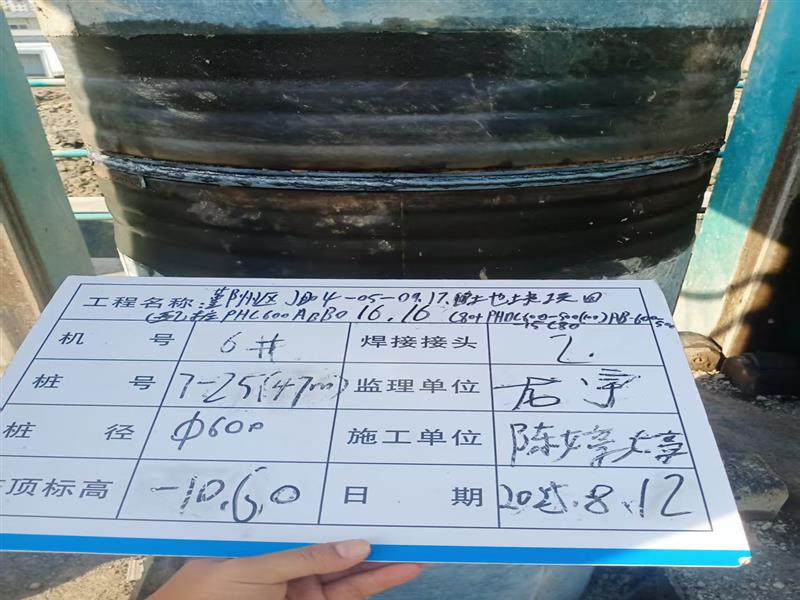 工程名称: 鄞州区JD04-05-09.17 地块项目
桩PHC600AB130 16.16 C80+PHDC600-500(100)AB-600/500
-15C80
机 号 6# 焊接接头 2.
桩 号 7-25(47m) 监理单位
桩 径 Φ600 施工单位 陈婷婷
顶标高 -10.60 日 期 2025.8.12